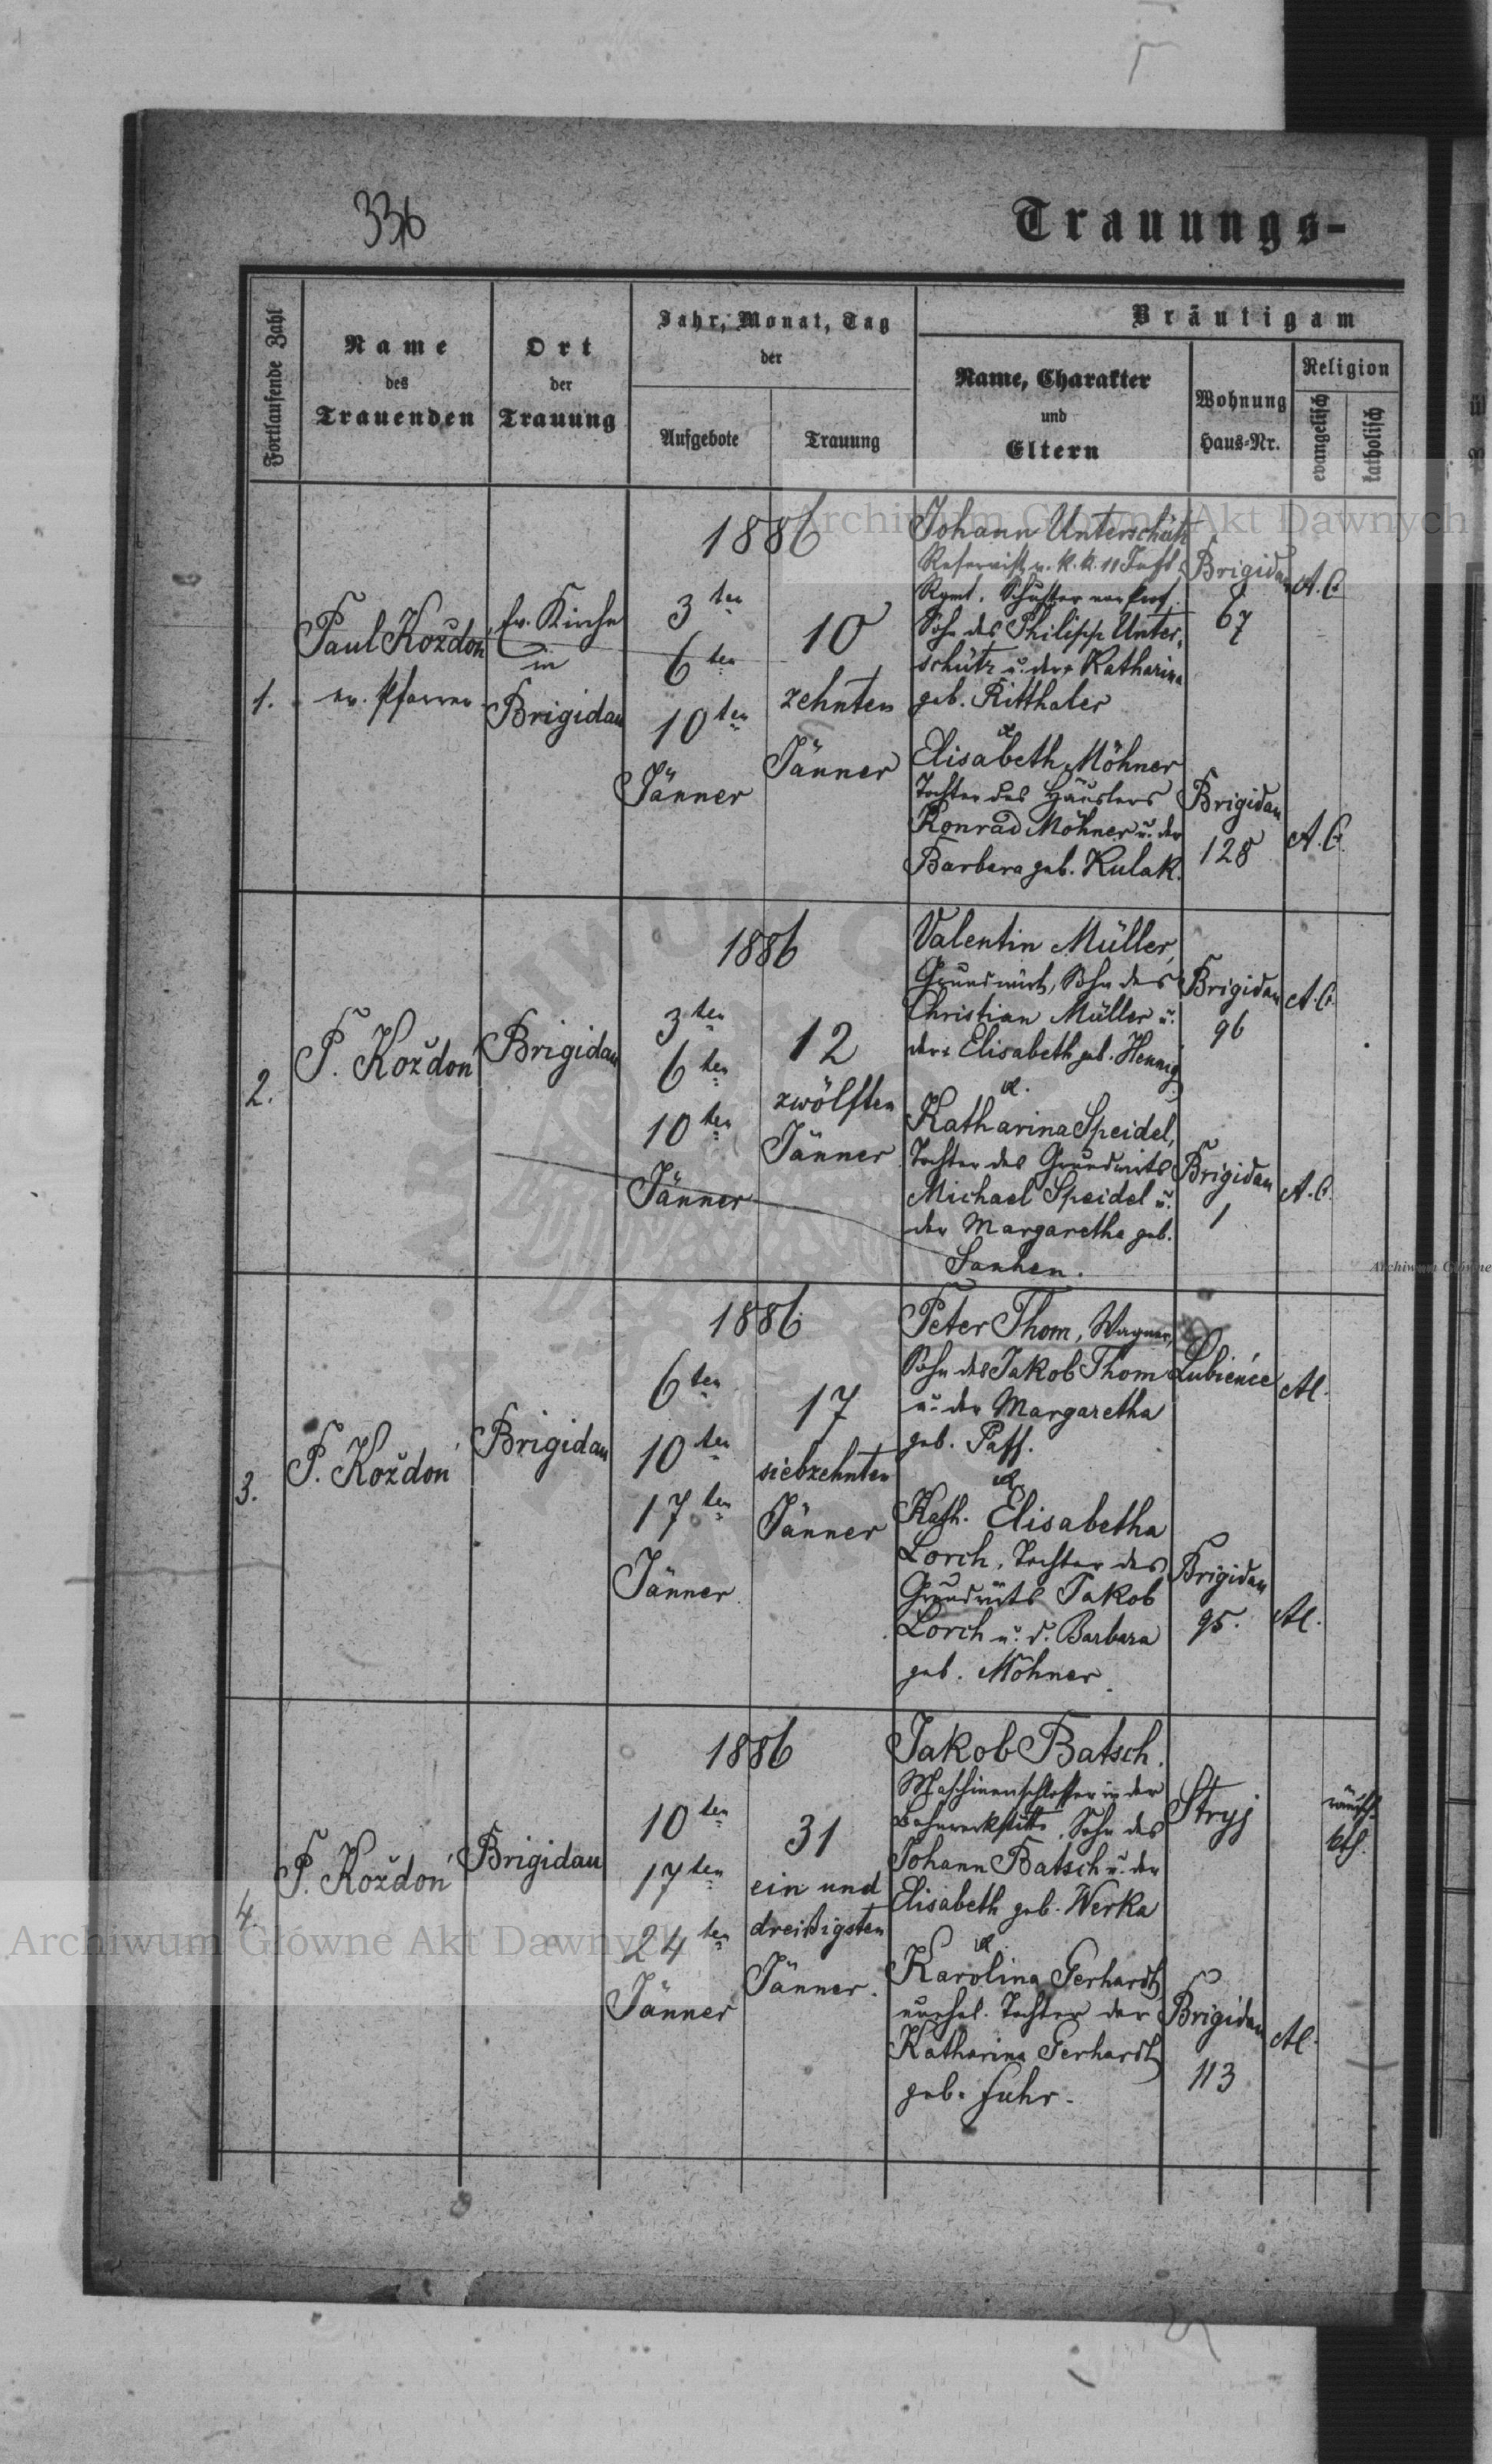 336
Trauungs-
Fortlaufende Zahl
Name
des
Trauenden
Ort
der
Trauung
Jahr, Monat, Tag
der
Aufgebote
Trauung
Bräutigam
Name, Charakter
und
Eltern
Wohnung
Haus-Nr.
Religion
evangelisch
katholisch
1.
Paul Koždoń
ev. Pfarrer
Ev. Kirche
in
Brigidau
1886
3ten
6ten
10ten
Jänner
10
zehnten
Jänner
Johann Unterschütz
Reservist v. k. k. 11
Rgmt. Schuster von Prof.
Sohn des Philipp Unter-
schütz u. der Katharina
geb. Ritthaler
&
Elisabeth Möhner
Tochter des Häuslers
Konrad Möhner u. der
Barbara geb. Kulak.
Brigidau
67
A.C.
Brigidau
128
A.C.
2.
P. Koždoń
Brigidau
1886
3ten
6ten
10ten
Jänner
12
zwölften
Jänner
Valentin Müller,
Grundwirt, Sohn des
Christian Müller u.
der Elisabeth geb. Hennig
&.
Katharina Speidel,
Tochter des Grundwirts
Michael Speidel u.
der Margaretha geb.
Sanhen.
Brigidau
96
A.C.
Brigidau
1
A.C.
3.
P. Koždoń
Brigidau
1886
6ten
10ten
17ten
Jänner
17
siebzehnten
Jänner
Peter Thom, Wagner,
Sohn des Jakob Thom
u. der Margaretha
geb. Paff.
&
Kath. Elisabetha
Lorch, Tochter des
Grundwirts Jakob
Lorch u. d. Barbara
geb. Möhner.
Lubieńce
AC.
Brigidau
95.
AC.
4.
P. Koždoń
Brigidau
1886
10ten
17ten
24ten
Jänner
31
ein und
dreißigsten
Jänner.
Jakob Batsch.
Maschinenschlosser in der
Bahnwerkstätte, Sohn des
Johann Batsch u. der
Elisabeth geb. Werka
&.
Karolina Gerhardt
unehel. Tochter der
Katharina Gerhardt
geb. Fuhr.
Stryj
kth.
Brigidau
113
AC.
Archiwum Główne Akt Dawnych
Archiwum Główne Akt Dawnych
Archiwum Główne